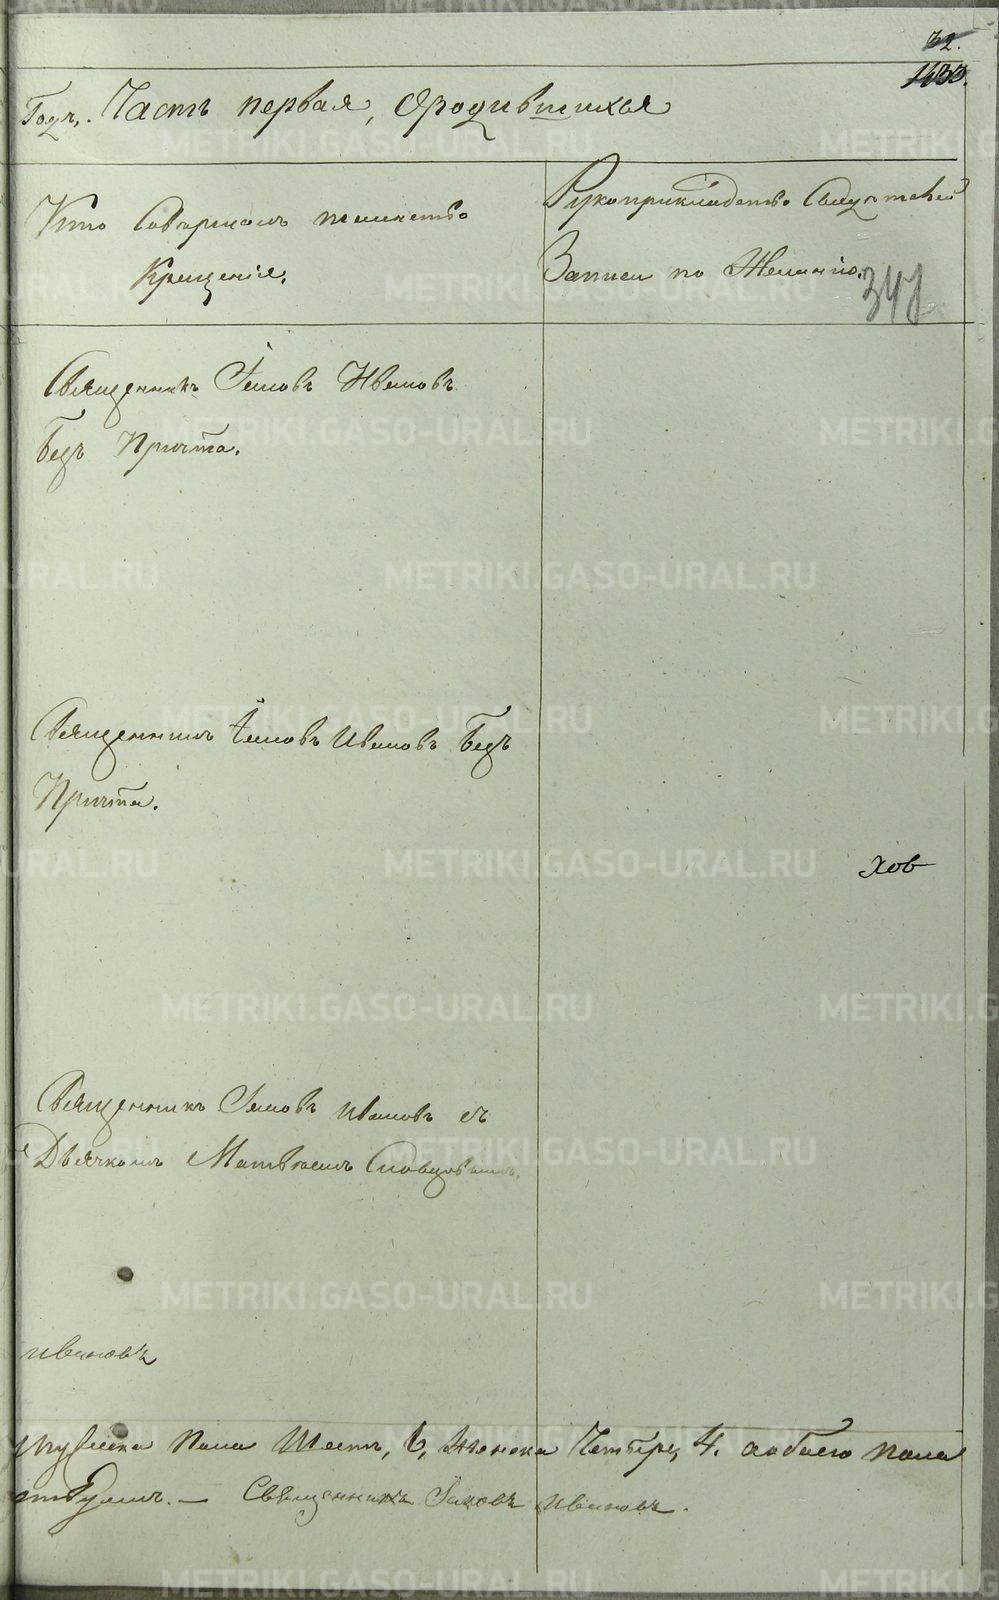 32.
1433.
Годъ. Часть первая, Ородившихся
Кто Совершалъ таинство
Крещенія.
Рукоприкладство Свидѣтелей
Записи по Желанію.
347
Священникъ Іаковъ Ивановъ
Безъ Причта.
Священникъ Іаковъ Ивановъ Безъ
Причта.
хов
Священникъ Іаковъ Ивановъ съ
Дьячкомъ Матвѣемъ Словцовымъ.
Ивановъ
мужеска пола Шесть, 6, женска Четыре, 4. аобоего пола
Священникъ Іаковъ Ивановъ.
METRIKI.GASO-URAL.RU